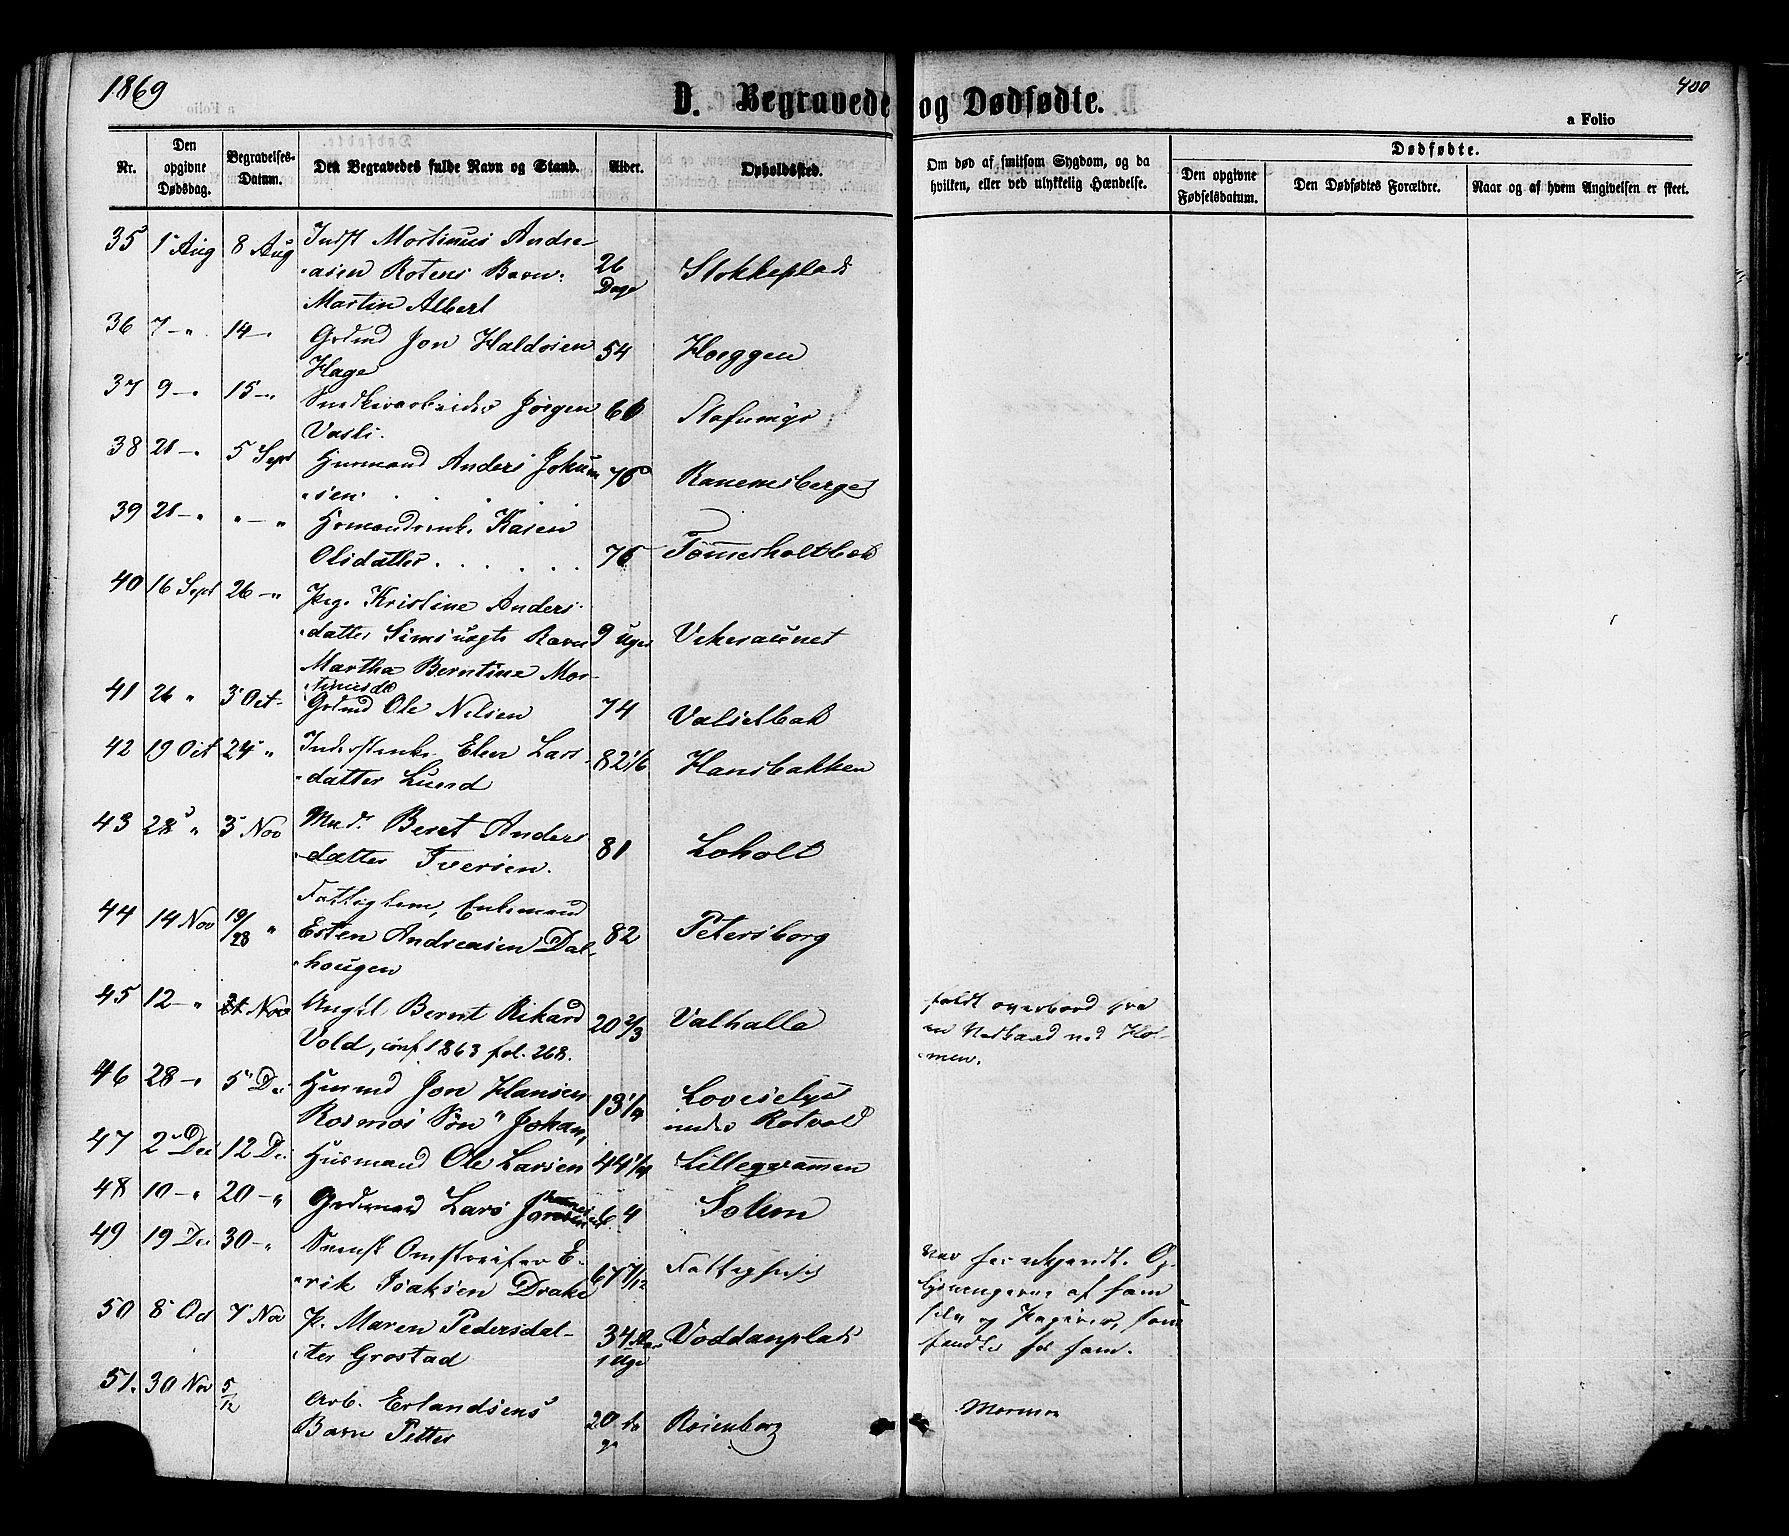 1869
400
D. Begravede og Dødfødte.
a Folio
Nr.
Den opgivne Dødsdag.
Begravelses-Datum.
Den Begravedes fulde Navn og Stand.
Alder.
Opholdssted.
Om død af smitsom Sygdom, og da hvilken, eller ved ulykkelig Hændelse.
Dødfødte.
Den opgivne Fødselsdatum.
Den Dødfødtes Forældre.
Naar og af hvem Angivelsen er skeet.
35 1 Aug 8 Aug Indst Martinus Andre-
asen Rotens Barn 26 Dage Stokkeplads
Martin Albert
36 7 - " 14 - " Grdmd Jon Haldosen 54 Hoeggen
Hage
37 9 - " 15 - " Jørgen
Vasli.
38 28 - " 5 Sept Husmand Anders Johan
sen. 76 Ranemsberget
39 28 - " " - " Hsmandsenk. Karen
Olsdatter . . . . . . 76 Tømmerholtbak
40 16 Sept 26 - " Pige Kristine Anders
datter Barn 9 Uger Vikesaunet
Martha Berntine Mor-
tinusd
41 26 " 3 Oct Grdmd Ole Nilsen 74 Valsetbak
42 19 Oct 24 " Inderstenke Elen Lars
datter Lund 82 1/6 Hansbakken
43 28 " 3 Nov Mad. Beret Anders
datter Iversen. 81 Loholt
44 14 Nov 19/28 " Fattiglem, Enkemand
Esten Andreasen Dal- 82 Petersborg
hougen
45 12 - " Nov Ungkl Bernt Rikard
Vold, conf 1863 fol. 268. 20 2/3 Valhalla
faldt overbord fra
en ved Hol-
men.
46 28 - " 5 De Husmd Jon Hansen
Rosmos Søn " Johan, 13 1/4 Loviselyst
under Rotvold
47 2 Dec 12 De Husmand Ole Larsen 44 1/4 Lillegrammen
48 10 - " 20 - " Grdmand Lars 64 Solem
49 19 Dec 30 - " Svensk Omstreifer E-
rik Isaksen Drake 67 7/12 Fattighuset
var her ukjendt. Op-
lysningerne af ham
selv og Papirer, som
fandtes hos ham.
50 8 Oct 7 Nov P. Maren Pedersdat-
ter Grostad 34 Aar 1 Uge Voddanplads
51. 30 Nov 5/12 Arb. Erlandsens
Barn Petter 20 da ge Rosenborg Mormon